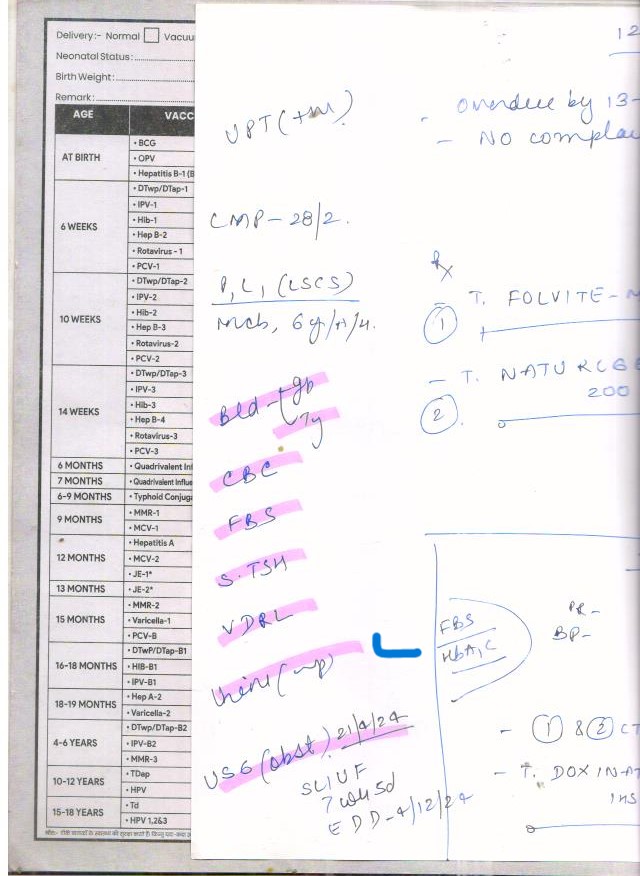 Delivery:- Normal Vacuu
Neonatal Status:
Birth Weight:
Remark:
AGE VACC
AT BIRTH
• BCG
• OPV
• Hepatitis B-1 (B
6 WEEKS
• DTwp/DTap-1
• IPV-1
• Hib-1
• Hep B-2
• Rotavirus - 1
• PCV-1
10 WEEKS
• DTwp/DTap-2
• IPV-2
• Hib-2
• Hep B-3
• Rotavirus-2
• PCV-2
14 WEEKS
• DTwp/DTap-3
• IPV-3
• Hib-3
• Hep B-4
• Rotavirus-3
• PCV-3
6 MONTHS • Quadrivalent Inf
7 MONTHS • Quadrivalent Influe
6-9 MONTHS • Typhoid Conjuga
9 MONTHS
• MMR-1
• MCV-1
12 MONTHS
• Hepatitis A
• MCV-2
• JE-1*
13 MONTHS • JE-2*
15 MONTHS
• MMR-2
• Varicella-1
• PCV-B
16-18 MONTHS
• DTwP/DTap-B1
• HIB-B1
• IPV-B1
18-19 MONTHS
• Hep A-2
• Varicella-2
4-6 YEARS
• DTwp/DTap-B2
• IPV-B2
• MMR-3
10-12 YEARS
• TDap
• HPV
15-18 YEARS
• Td
• HPV 1,2&3
12
UPT (+ve)
- overdue by 13-
- No complai
LMP - 28/2.
P1L1 (LSCS)
Mch, 6y/
Rx
① T. FOLVITE-M
- T. NATU
② 200
Bld - gp
Ty
CBC
FBS
S. TSH
VDRL
Urine (
USG (obst) 21/4/24
SLIUF
7 wk 5d
EDD - 4/12/24
FBS
HbA1C
PR-
BP-
- ① & ② CT
- T. DOXINAT
1HS